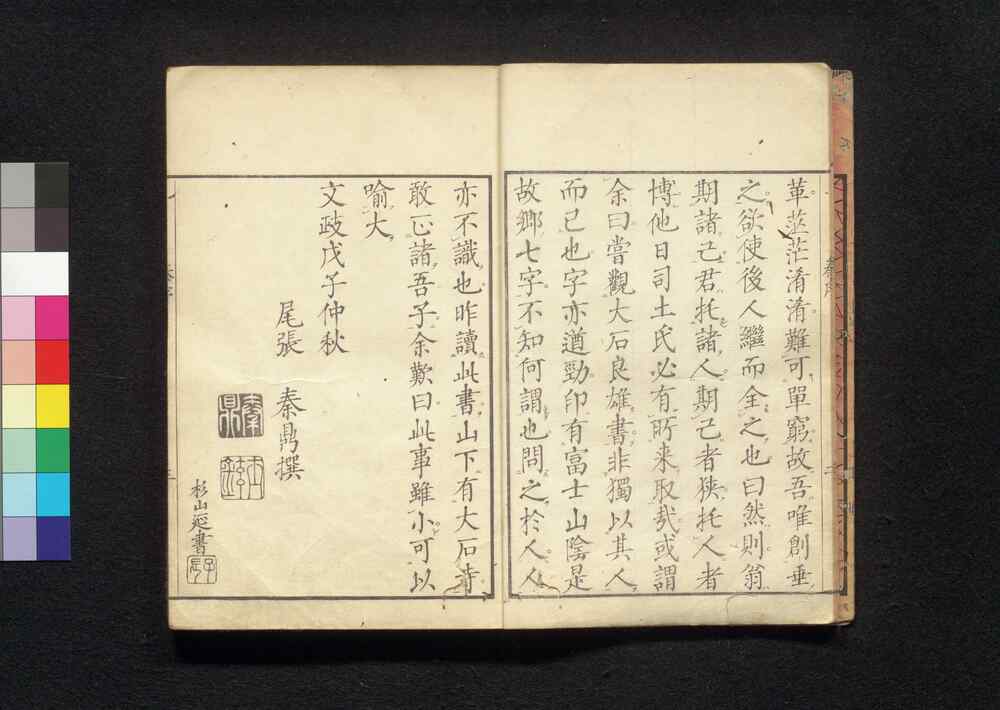 革茫茫淆淆難可單窮故吾唯創垂
之欲使後人繼而全之也曰然則翁
期諸己君托諸人期己者狹托人者
博他日司土氏必有所来取哉或謂
余曰嘗觀大石良雄書非獨以其人
而已也字亦遒勁印有富士山陰是
故鄉七字不知何謂也問之於人人
亦不識也昨讀此書山下有大石寺
敢正諸吾子余歎曰此事雖小可以
喻大
文政戊子仲秋
尾張 秦鼎撰
秦鼎
士鉉
杉山延書